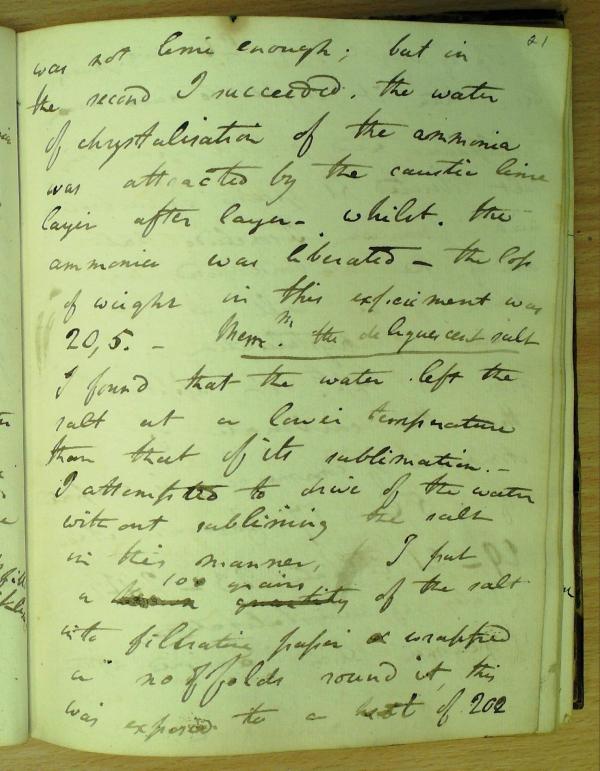 21
was not lime enough; but in
the second I succeeded. the water
of chrystalisation of the ammonia
was attracted by the caustic lime
layer after layer - whilst. the
ammonia was liberated - the loss
of weight in this experiment was
20,5. - Mem.m the deliquescent salt
I found that the water left the
salt at a lower temperature
than that of its sublimation. -
I attempted to drive of the water
without subliming the salt
in this manner, I put
100 grains
a known quantity of the salt
into filtrating paper & wrapped
a no of folds round it, this
was exposed to a heat of 202